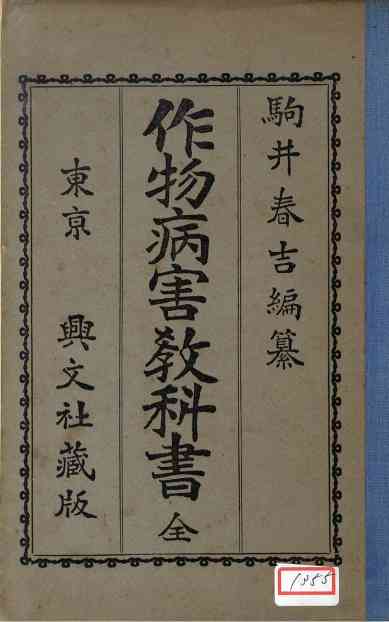 駒井春吉編纂
作物病害教科書 全
東京 興文社蔵版
1855